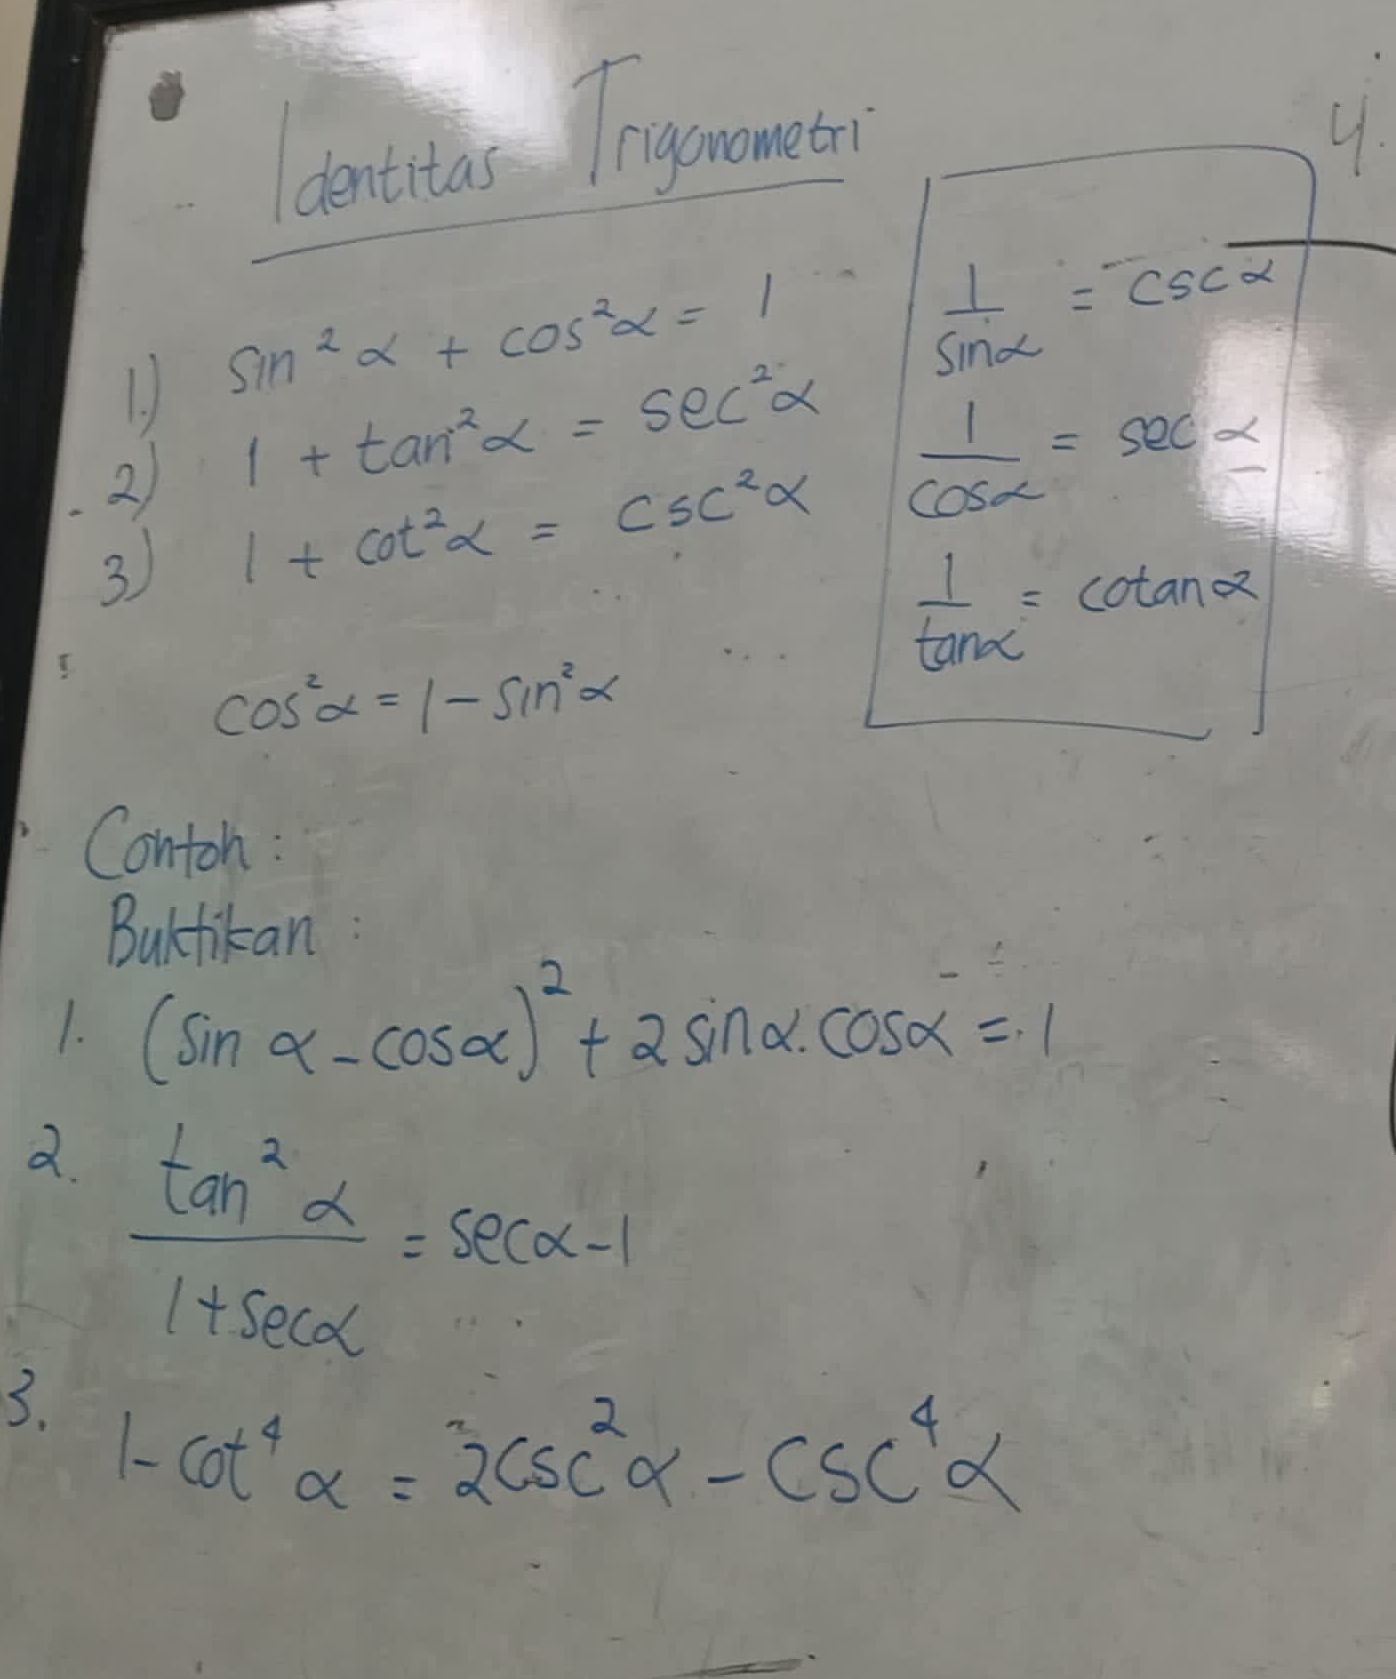 Identitas Trigonometri
1.) sin² α + cos²α = 1
2) 1 + tan²α = sec²α
3) 1 + cot²α = csc²α
cos²α = 1 - sin²α
1/sinα = csc α
1/cosα = sec α
1/tanα = cotan α
4.
Contoh :
Buktikan :
1. (sin α - cosα)² + 2 sinα. cosα = 1
2. tan² α / 1 + secα = secα - 1
3. 1 - cot⁴ α = 2csc²α - csc⁴α